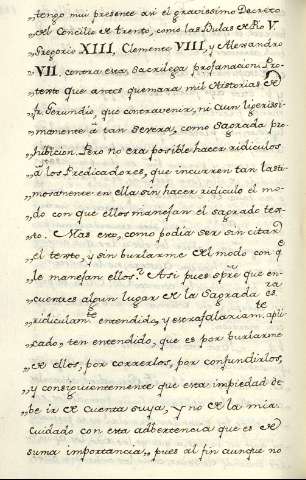 „tengo mui presente asi el gravissimo Decreto
„del Concilio de Trento, como las Bulas de Pio V.
„Gregorio XIII, Clemente VIII, y Alexandro
„VII, contra esta sacrilega profanacion. Pro-
„testo que antes quemara mil Historias de
„fr. Gerundio, que contravenir, ni aun ligerissi-
„mamente à tan severa, como sagrada pro-
„hibicion. Pero no era posible hacer ridiculos
„à los Predicadores, que incurren tan lasti-
„mosamente en ella sin hacer ridiculo el mo-
„do con que ellos manejan el sagrado tex-
„to. Mas esto, como podia ser sin citar
„el texto, y sin burlarme del modo con q̃
„le manejan ellos? Asi pues spr̃e que en-
„cuentres algun lugar de la Sagrada
„ridiculam.te entendido, y estrafalariam.te apli-
„cado, ten entendido, que es por burlarme
„de ellos, por correrlos, por confundirlos,
„y consiguientemente que esta impiedad de-
„be ir de cuenta suya, y no de la mia.
„Cuidado con esta advertencia que es de
„suma importancia, pues al fin aunque no